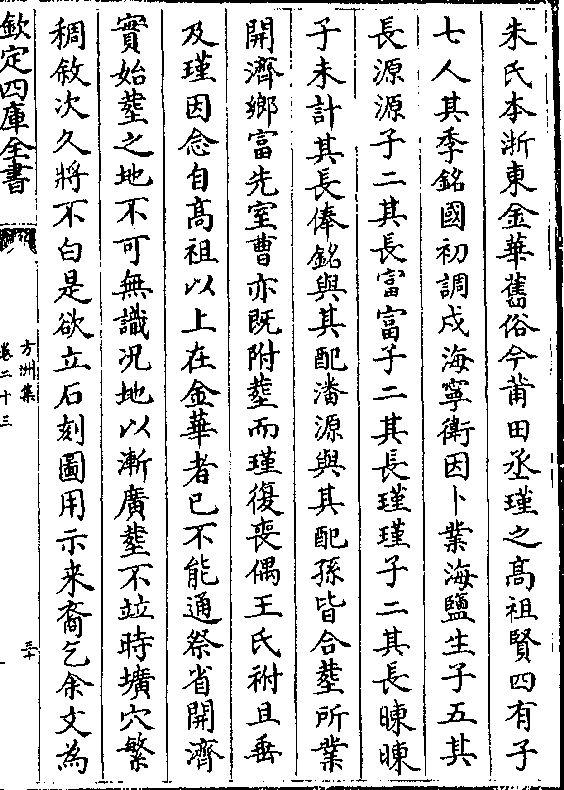 朱氏本浙東金華舊俗今莆田丞瑾之髙祖賢四有子
七人其季銘國初調戍海寧衛因卜業海鹽生子五其
長源源子二其長富富子二其長瑾瑾子二其長暕暕
子未計其長俸銘與其配潘源與其配孫皆合塟所業
開濟鄉富先室曹亦既附塟而瑾復喪偶王氏祔且垂
及瑾因念自髙祖以上在金華者已不能通祭省開濟
實始塟之地不可無識况地以漸廣塟不竝時壙穴繁
稠敘次久將不白是欲立石刻圖用示来裔乞余文為
欽定四庫全書
方洲集
卷二十三
三十